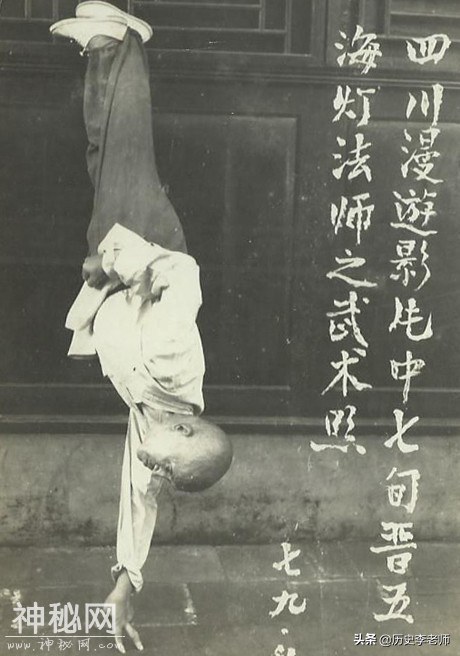 四川漫遊影片中七旬晋五
海灯法师之武术照
七九.
神秘网
www.shenmi.com
头条 @历史李老师